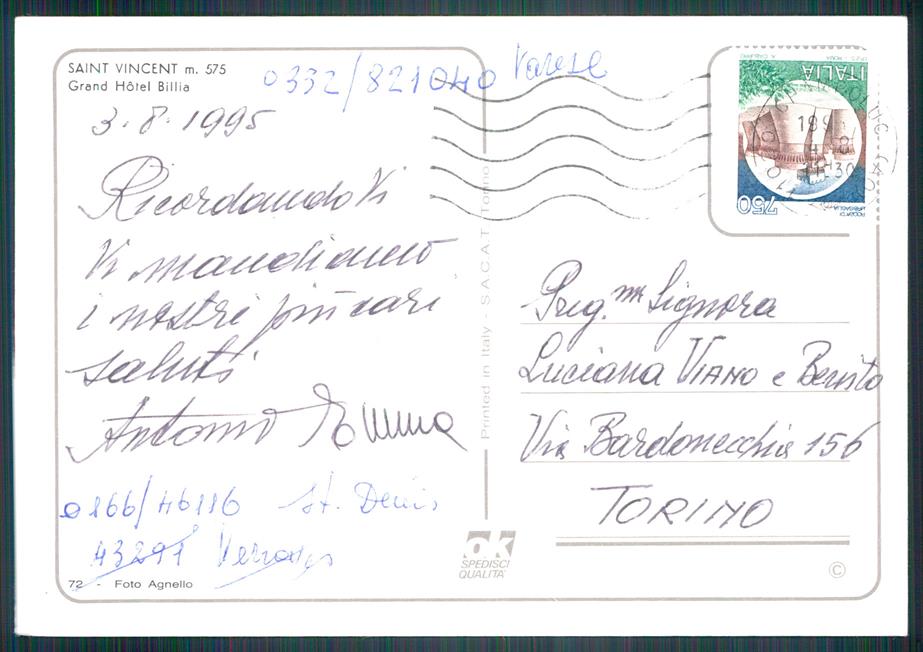 SAINT VINCENT m. 575
Grand Hôtel Billia
0332/821040 Varese
3.8.1995
Ricordando Vi
Vi mandiamo
i nostri più cari
saluti
Antonio Emma
0166/46116 St. Denis
43291
72 - Foto Agnello
Printed in Italy - S.A.C.A.T. Torino
ok
SPEDISCI
QUALITA'
ITALIA
750
ROCCA DI
URBISAGLIA
Preg.ma Signora
Luciana VIANO e Benito
Via Bardonecchia 156
TORINO
©